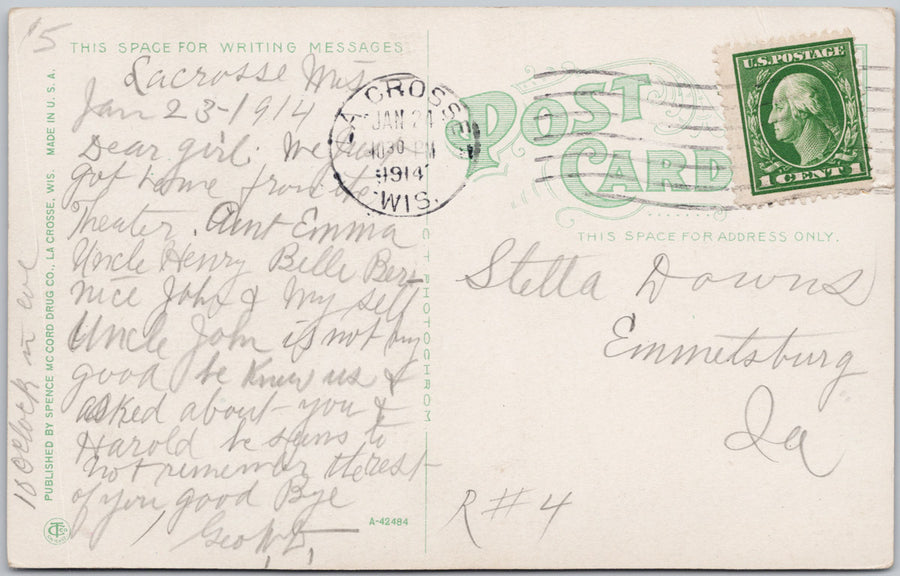 5
THIS SPACE FOR WRITING MESSAGES
Lacrosse Wis
Jan 23-1914
Dear girl. We
got home from the
Theater. Aunt Emma
Uncle Henry Belle Ber-
nice John & My self
Uncle John is not
good he Knew us &
asked about you &
Harold he seems to
not remember the rest
of you good Bye
Geo
10 oclock in eve
PUBLISHED BY SPENCE MC CORD DRUG CO., LA CROSSE, WIS. MADE IN U. S. A.
C T PHOTOCHROM
A-42484
LA CROSSE
JAN 24
10 30 PM
1914
WIS.
POST
CARD
U.S. POSTAGE
1 CENT 1
THIS SPACE FOR ADDRESS ONLY.
Stella Downs
Emmetsburg
Ia
R#4